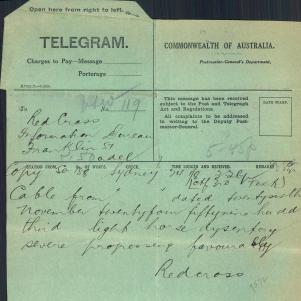 Open here from right to left.
TELEGRAM.
Charges to Pay—Message
Porterage
COMMONWEALTH OF AUSTRALIA.
Postmaster-General's Department.
This message has been received subject to the Post and Telegraph Act and Regulations.
All complaints to be addressed in writing to the Deputy Postmaster-General.
DATE STAMP.
119
To
No.
Red Cross
Information Bureau
Franklin St
adel
STATION FROM,
WORDS,
TIME LODGED AND RECEIVED.
REMARKS
Sydney
Cable from " dated twentysixth
November twentyfour fiftynine hundred
third light horse dysentery
severe progressing favourably
Redcross